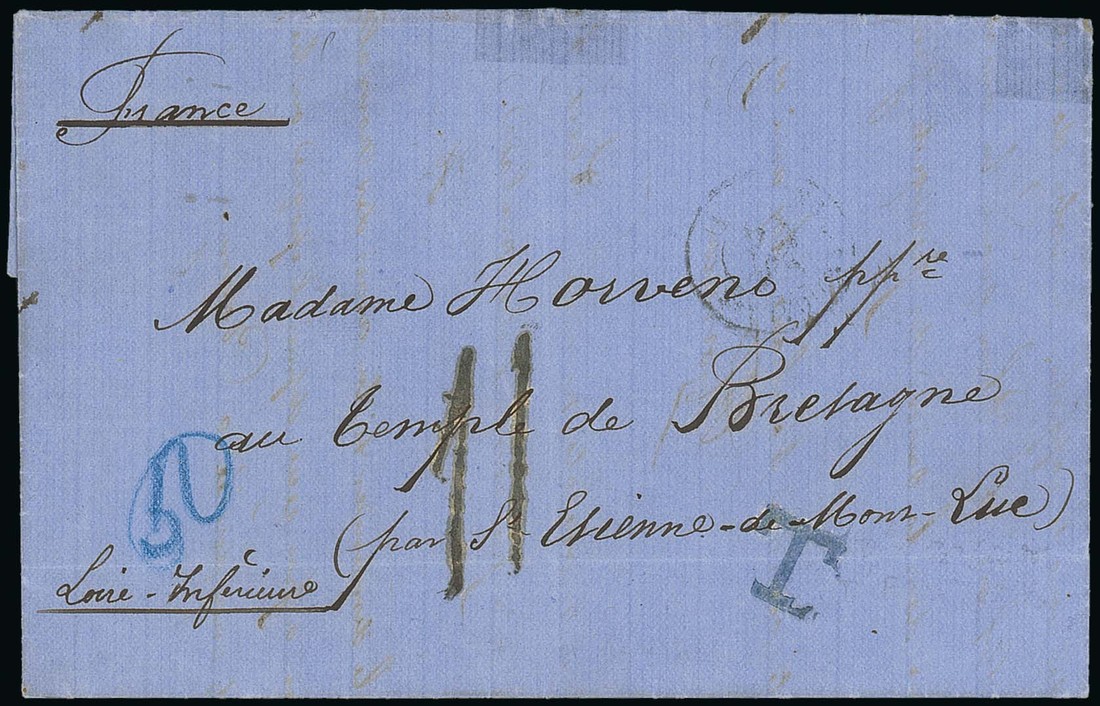 France
Madame Horveno ppre
au temple de Bretagne
11
50
(par St Etienne-de-Mont-Luc)
T
Loire-Inférieure